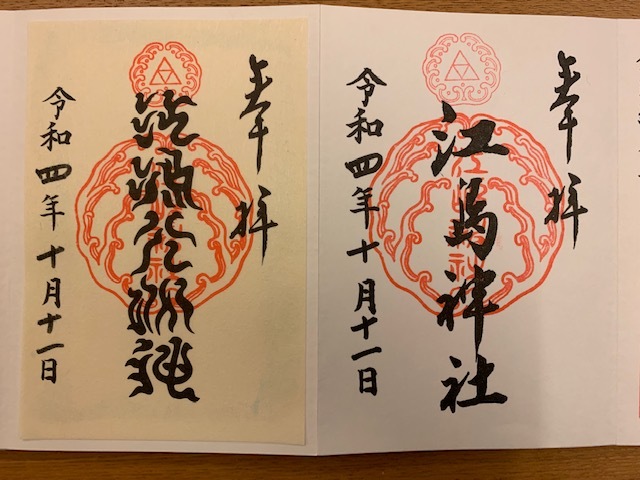 奉拝
江島神社
令和四年十月十一日
奉拝
令和四年十月十一日